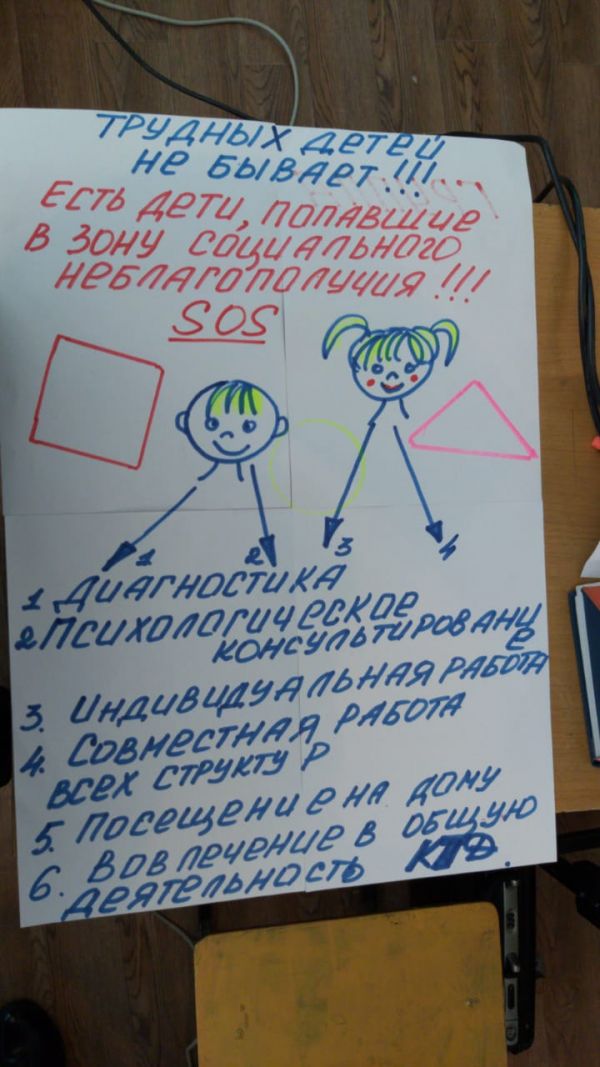 ТРУДНЫХ ДЕТЕЙ
НЕ БЫВАЕТ!!!
ЕСТЬ ДЕТИ, ПОПАВШИЕ
В ЗОНУ СОЦИАЛЬНОГО
НЕБЛАГОПОЛУЧИЯ!!!
SOS
1 2 3 4
1 ДИАГНОСТИКА
2 ПСИХОЛОГИЧЕСКОЕ
КОНСУЛЬТИРОВАНИ
Е
3. ИНДИВИДУАЛЬНАЯ РАБОТА
4. СОВМЕСТНАЯ РАБОТА
ВСЕХ СТРУКТУР
5. ПОСЕЩЕНИЕ НА ДОМУ
6. ВОВЛЕЧЕНИЕ В ОБЩУЮ
ДЕЯТЕЛЬНОСТЬ КТД.